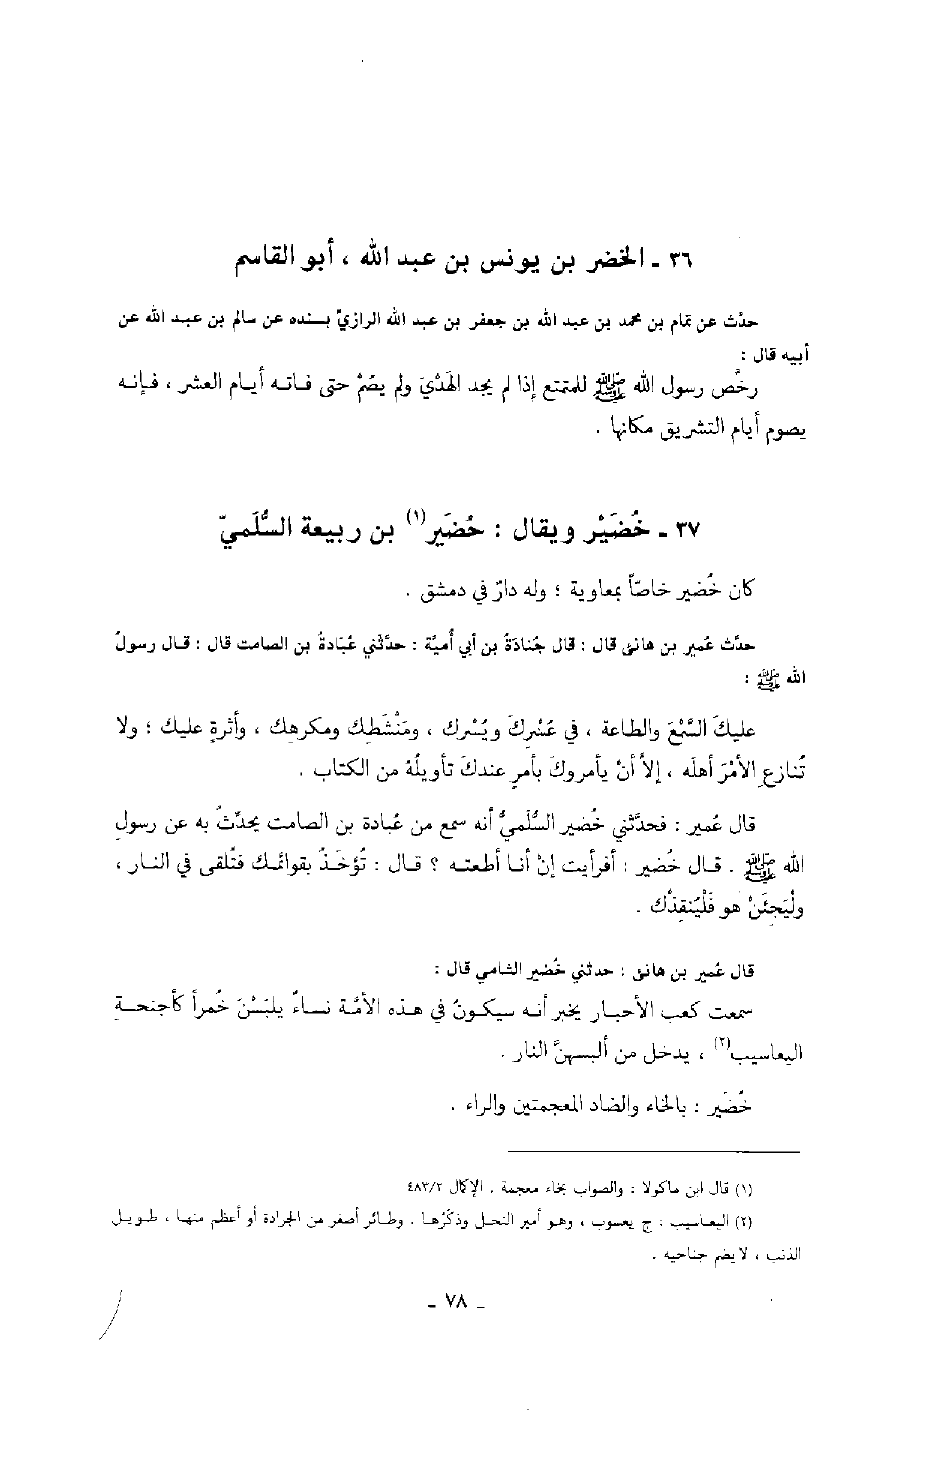 ٣٦ ـ الخضر بن يونس بن عبد الله ، أبو القاسم
حدّث عن تمام بن محمد بن عبد الله بن جعفر بن عبد الله الرازيّ بسنده عن سالم بن عبد الله عن
أبيه قال :
رخّص رسول الله ﷺ للمتمتع إذا لم يجد الهَدْيَ ولم يصُمْ حتى فاته أيام العشر ، فإنه
يصوم أيام التشريق مكانها .
٣٧ ـ خُضَيْر ويقال : حُضَير(١) بن ربيعة السُّلَميّ
كان خُضير خاصّاً بمعاوية ؛ وله دارٌ في دمشق .
حدّث عُمير بن هانئ قال : قال جُنادَةُ بن أبي أُميّة : حدّثني عُبَادةُ بن الصامت قال : قال رسولُ
الله ﷺ :
عليكَ السَّمْعَ والطاعة ، في عُسْرِكَ ويُسْرك ، ومَنْشَطِك ومكرهِك ، وأَثرةٍ عليك ؛ ولا
تُنازعِ الأمْرَ أهلَه ، إلاّ أنْ يأمروكَ بأمرٍ عندكَ تأويلُهُ من الكتاب .
قال عُمير : فحدَّثني خُضير السُّلَميُّ أنه سمع من عُبادة بن الصامت يحدّثُ به عن رسولِ
الله ﷺ . قال خُضير : أفرأيت إنْ أنا أطعته ؟ قال : تُؤخَذُ بقوائمك فتُلقى في النار ،
ولْيَجِئَنْ هو فَلْيُنقِذْك .
قال عُمير بن هانئ : حدثني خُضير الشامي قال :
سمعت كعب الأحبار يخبر أنه سيكونُ في هذه الأمّة نساءٌ يلبَسْنَ خُمراً كأجنحةِ
اليعاسيب(٢) ، يدخل من ألبسهنَّ النار .
خُضَير : بالخاء والضاد المعجمتين والراء .
(١) قال ابن ماكولا : والصواب بخاء معجمة . الإكمال ٤٨٣/٢
(٢) اليعاسيب : ج يعسوب ، وهو أمير النحل وذكَرُها . وطائر أصغر من الجرادة أو أعظم منها ، طويل
الذنب ، لا يضم جناحيه .
ـ ٧٨ ـ